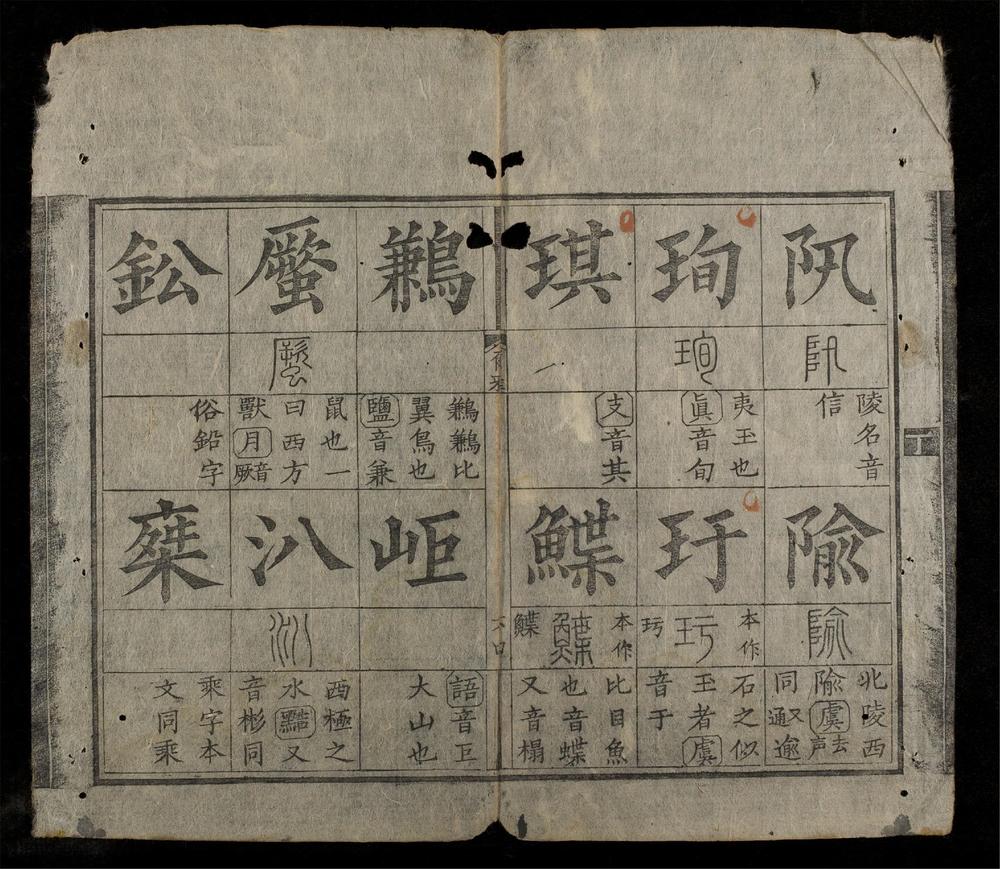 阠
阠
陵名音
信
隃
隃
北陵西
隃虞去声
同又通逾
珣
珣
夷玉也
眞音旬
玗
本作
玗
石之似
玉者虞
音于
琪
支音其
鰈
本作
鰈
比目魚
也音蝶
又音榻
鶼
鶼鶼比
翼鳥也
鹽音兼
岠
語音巨
大山也
蟨
蟨
鼠也一
曰西方
獸月音厥
汃
汃
西極之
水黠又
音彬同
鈆
俗鉛字
椉
乘字本
文同乘